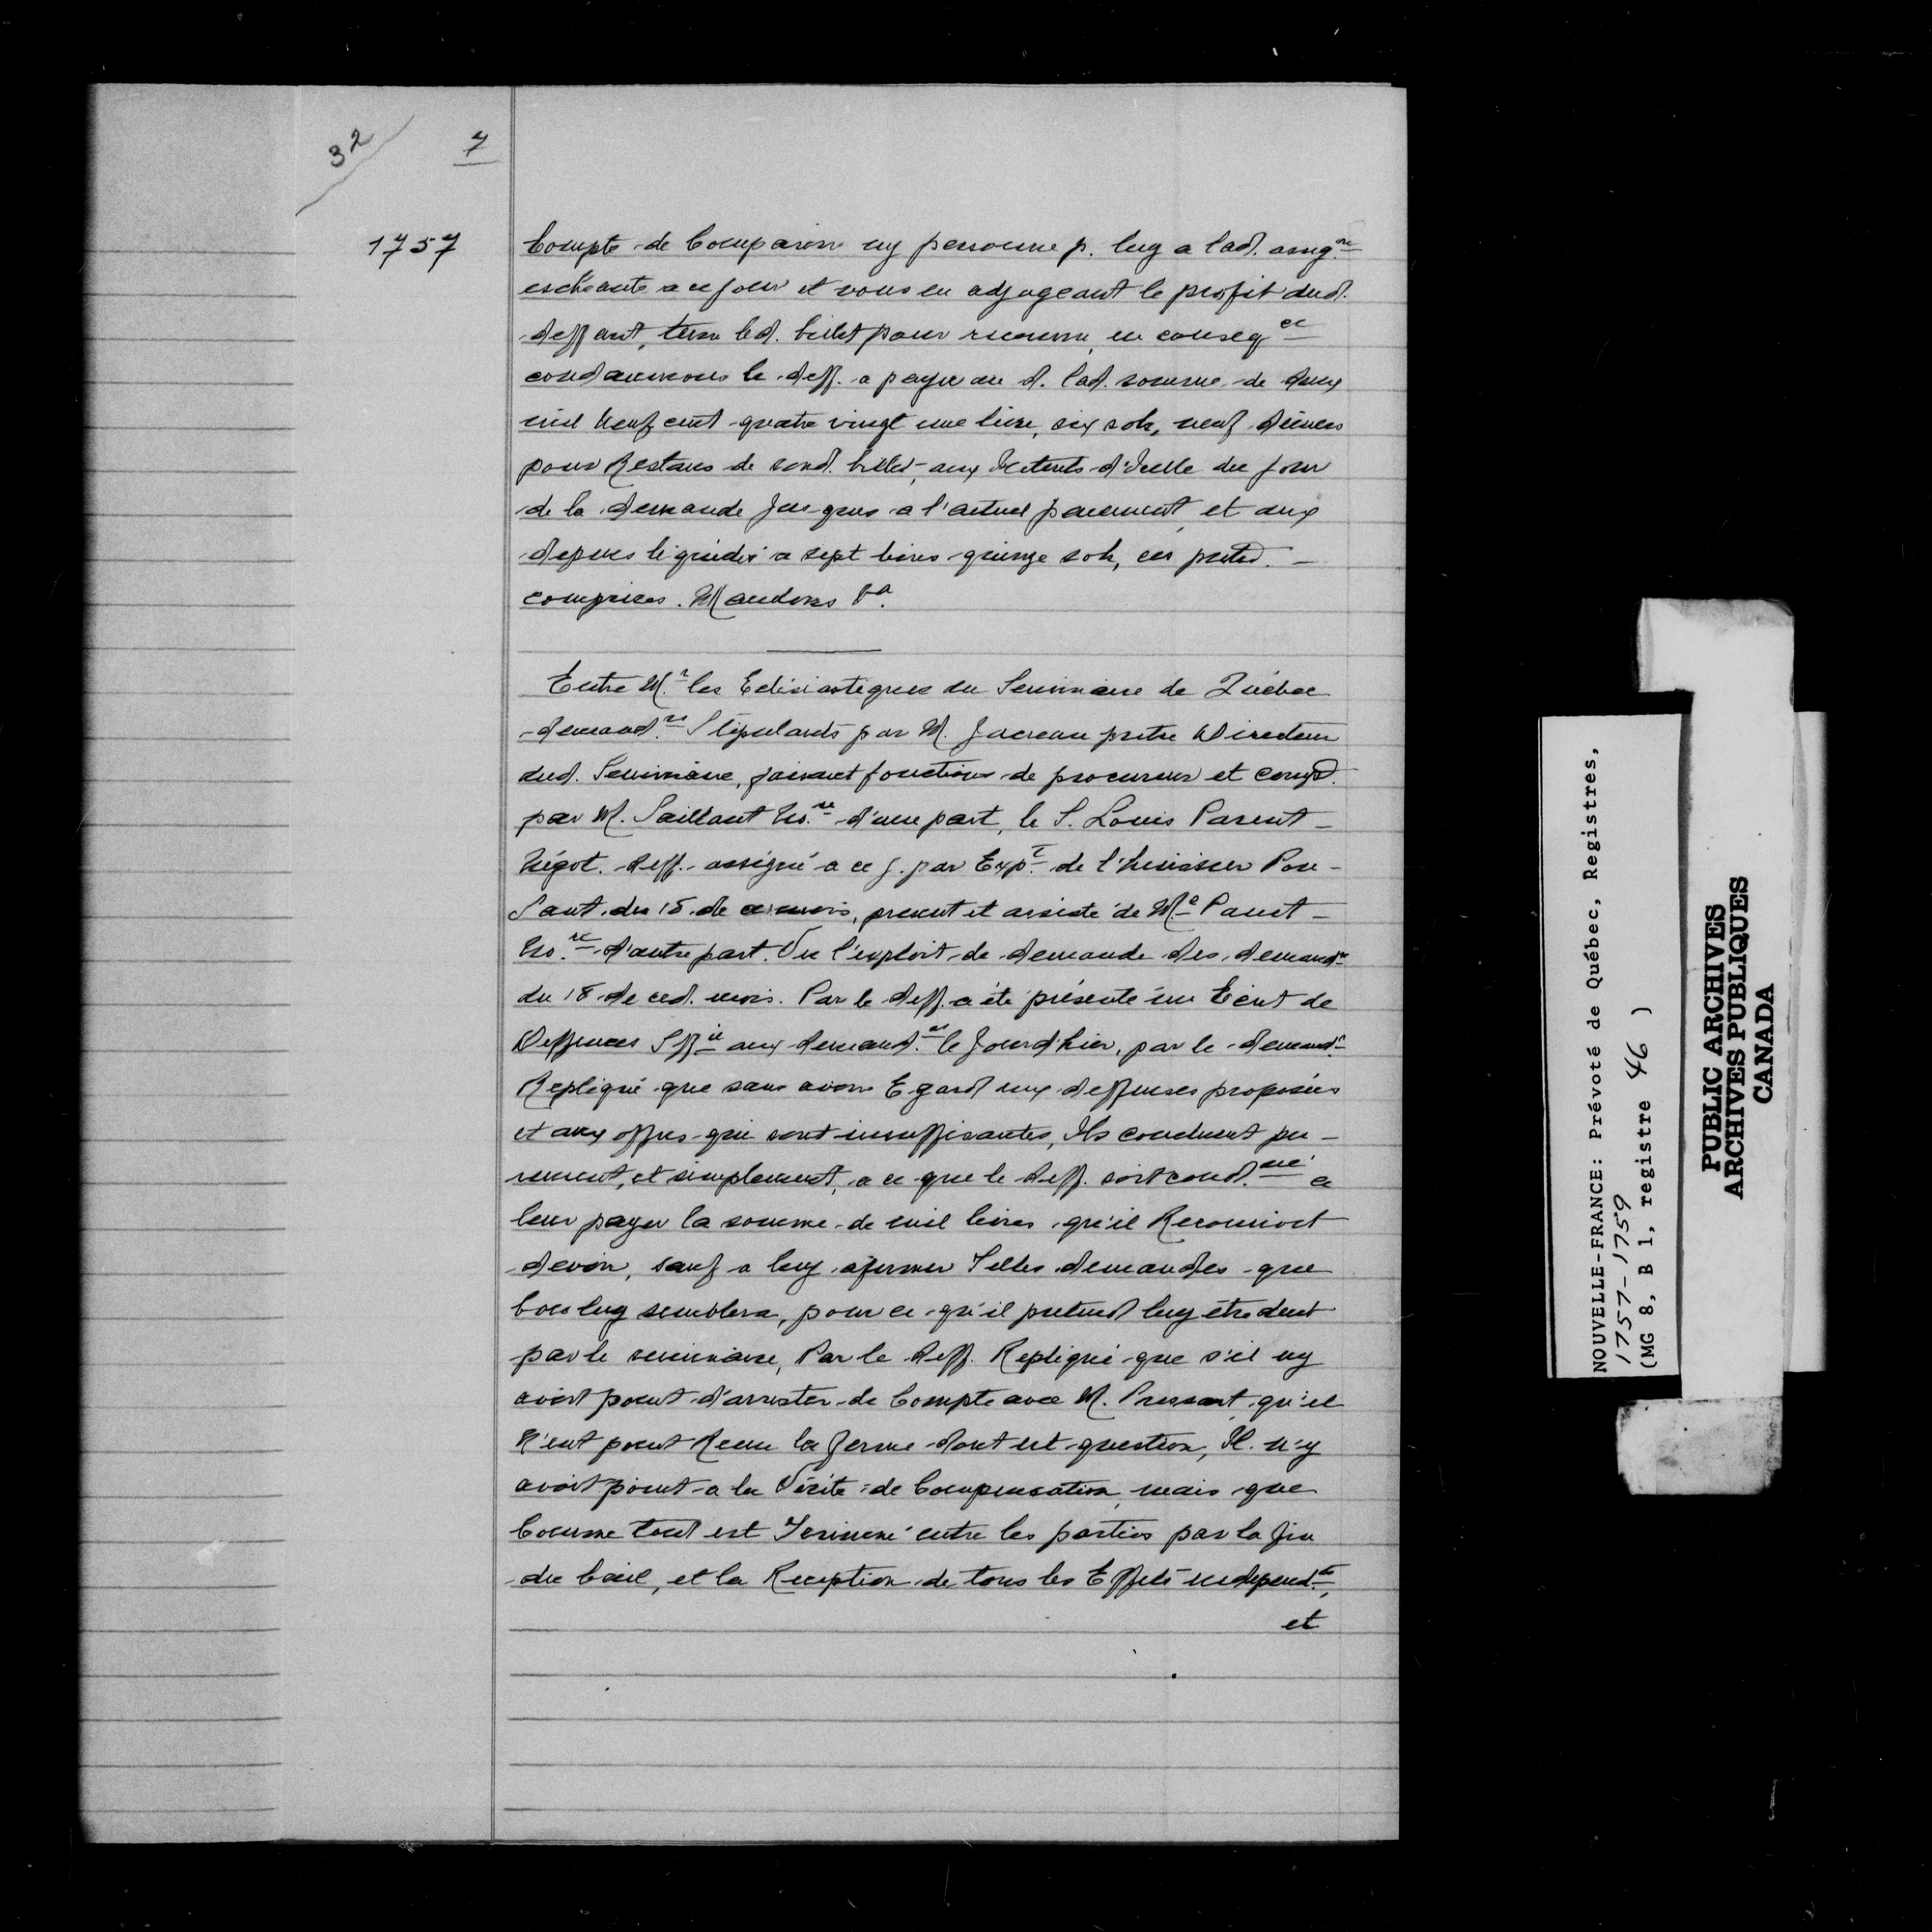 32
7
1757
Compte de Comparoir ny personne p. luy a lad. assig.on
eschéante a ce jour et vous en adjugeant le profit dud.
deffaut, tenu led. billet pour reconnu, en conseq.ce
condamnons le deff. a payer au d. lad. somme de deux
mil neuf cent quatre vingt une livre, six sols, neuf deniers
pour Restans de sond. billet, aux Interets d'Icelle du jour
de la demande jusques a l'actuel paiement, et aux
depens liquidés a sept livres quinze sols, ces présd.
comprises. Mandons Va.
Entre M.rs les Eclésiastiques du Seminaire de Québec
demand.rs Stipulants par M. Jacreau pretre Directeur
dud. Seminaire, faisant fonctions de procureur et comp.
par M. Saillant No.re d'une part, le S. Louis Parent
Négot. deff. assigné a ce j. par Exp.t de l'huissier
du 18 de ce mois, présent et assisté de M.e Panet
No.re d'autre part. Vu l'exploit de demande des demand.rs
du 18 de ced. mois. Par le deff. a été présenté un Ecrit de
Deffences Siffié aux demand.rs le Jourd'hier, par le demand.r
Repliqué que sans avoir Egard aux deffenses proposées
et aux offres qui sont insuffisantes, Ils concluent pu-
rement, et simplement, a ce que le deff. soit cond.né a
leur payer la somme de mil livres qu'il Reconnoit
devoir, sauf a luy a former Telles demandes que
bon luy semblera, pour ce qu'il prétend luy être deub
par le seminaire, Par le deff. Repliqué que s'il ny
avoit point d'arrester de Compte avec M. Pressart, qu'il
N'eut point Remis la ferme dont est question, Il n'y
avoit point a la Vérité de Compensation, mais que
Comme tout est Terminé entre les parties par la fin
du bail, et la Reception de tous les Effets en dépend.ts,
et
NOUVELLE-FRANCE: Prévoté de Québec, Registres,
1757-1759
(MG 8, B 1, registre 46 )
PUBLIC ARCHIVES
ARCHIVES PUBLIQUES
CANADA